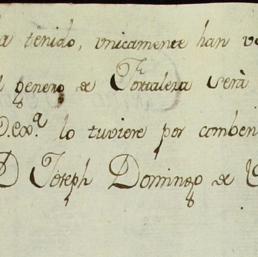 a tenido, vnicamente han v
genero de Fortaleza serà
D.exª. lo tuviere por comben
D Joseph Domingo de